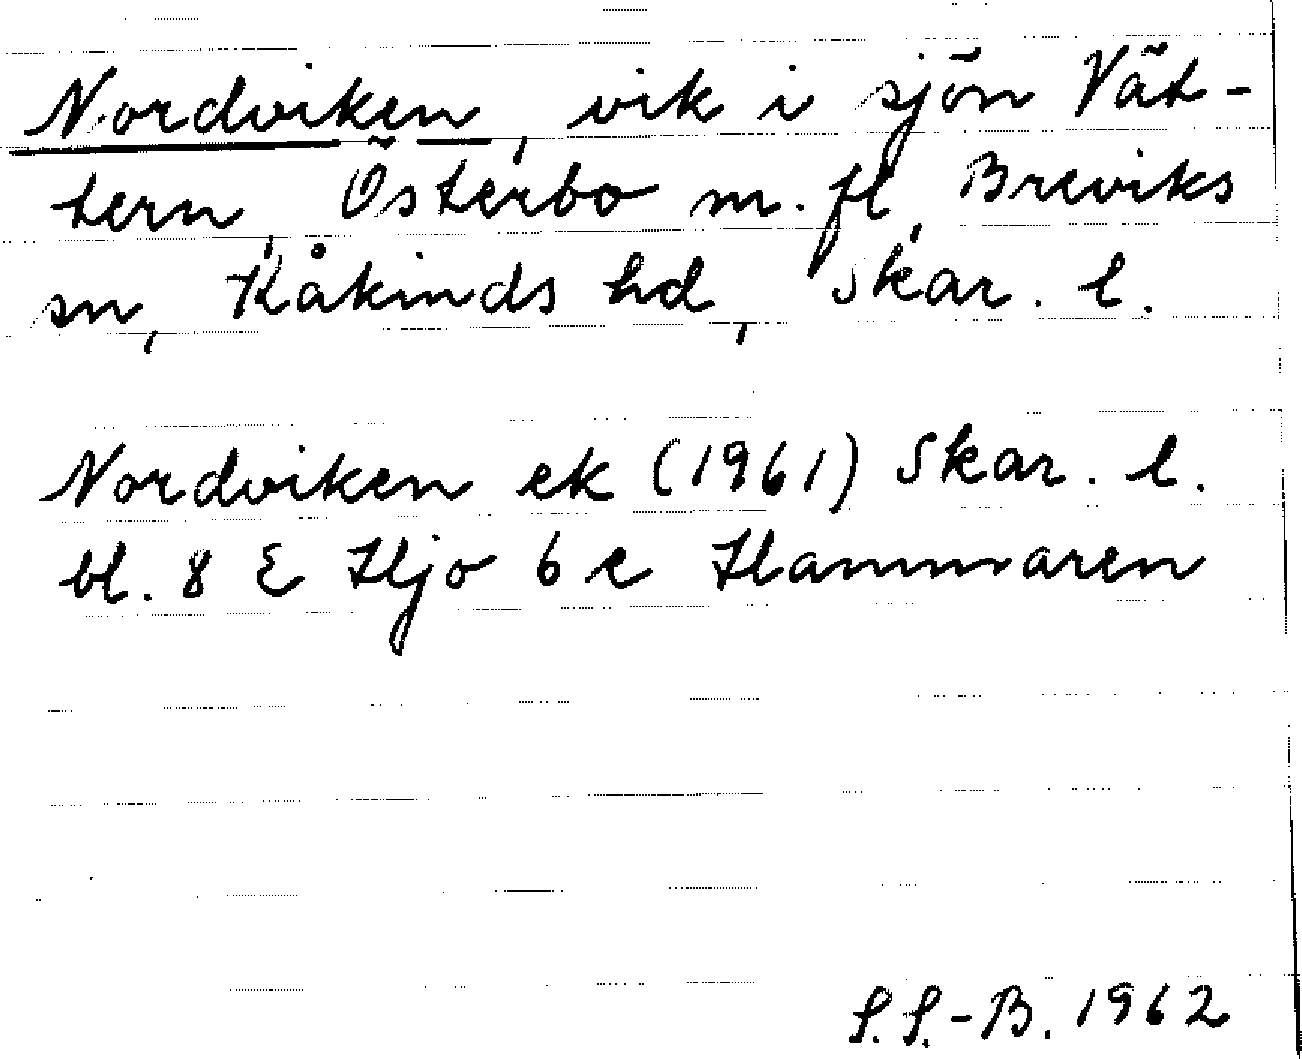 Nordviken, vik i sjön Vät-
tern, Österbo m. fl, Breviks
sn, Kåkinds hd, Skar. l.
Nordviken ek (1961) Skar. l.
bl. 8 E Hjo 6 e Hammaren
S. S.-B. 1962